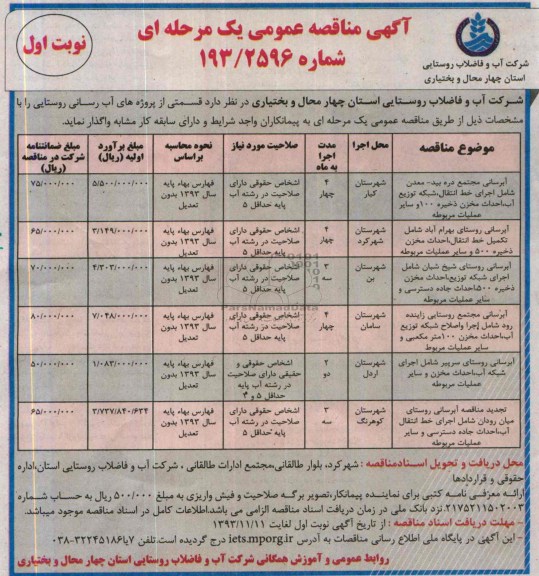 آگهی مناقصه عمومی یک مرحله ای
شماره ۱۹۳/۲۵۹۶
نوبت اول
شرکت آب و فاضلاب روستایی
استان چهار محال و بختیاری
شرکت آب و فاضلاب روستایی استان چهار محال و بختیاری در نظر دارد قسمتی از پروژه های آب رسانی روستایی را با
مشخصات ذیل از طریق مناقصه عمومی یک مرحله ای به پیمانکاران واجد شرایط و دارای سابقه کار مشابه واگذار نماید.
موضوع مناقصه | محل اجرا | مدت اجرا به ماه | صلاحیت مورد نیاز | نحوه محاسبه براساس | مبلغ برآورد اولیه (ریال) | مبلغ ضمانتنامه شرکت در مناقصه (ریال)
آبرسانی مجتمع دره بید- معدن شامل اجرای خط انتقال،شبکه توزیع آب،احداث مخزن ذخیره ۱۰۰و سایر عملیات مربوطه | شهرستان کیار | ۴ چهار | اشخاص حقوقی دارای صلاحیت در رشته آب پایه حداقل ۵ | فهارس بهاء پایه سال ۱۳۹۳ بدون تعدیل | ۵/۵۰۰/۰۰۰/۰۰۰ | ۷۵/۰۰۰/۰۰۰
آبرسانی روستای بهرام آباد شامل تکمیل خط انتقال،احداث مخزن ذخیره ۵۰۰ و سایر عملیات مربوطه | شهرستان شهرکرد | ۴ چهار | اشخاص حقوقی دارای صلاحیت در رشته آب پایه حداقل ۵ | فهارس بهاء پایه سال ۱۳۹۳ بدون تعدیل | ۳/۱۴۹/۰۰۰/۰۰۰ | ۶۵/۰۰۰/۰۰۰
آبرسانی روستای شیخ شبان شامل اجرای شبکه توزیع،احداث مخزن ذخیره ۵۰۰،احداث جاده دسترسی و سایر عملیات مربوطه | شهرستان بن | ۳ سه | اشخاص حقوقی دارای صلاحیت در رشته آب پایه حداقل ۵ | فهارس بهاء پایه سال ۱۳۹۳ بدون تعدیل | ۴/۳۰۳/۰۰۰/۰۰۰ | ۷۰/۰۰۰/۰۰۰
آبرسانی مجتمع روستایی زاینده رود شامل اجرا واصلاح شبکه توزیع آب،احداث مخزن ۱۰۰متر مکعبی و سایر عملیات مربوط | شهرستان سامان | ۴ چهار | اشخاص حقوقی دارای صلاحیت در رشته آب پایه حداقل ۵ | فهارس بهاء پایه سال ۱۳۹۳ بدون تعدیل | ۷/۰۴۸/۰۰۰/۰۰۰ | ۸۰/۰۰۰/۰۰۰
آبرسانی روستای سرپیر شامل اجرای شبکه آب،احداث مخزن و سایر عملیات مربوطه | شهرستان اردل | ۲ دو | اشخاص حقوقی و حقیقی دارای صلاحیت در رشته آب پایه حداقل ۵ و ۴ | فهارس بهاء پایه سال ۱۳۹۳ بدون تعدیل | ۱/۰۸۳/۰۰۰/۰۰۰ | ۵۰/۰۰۰/۰۰۰
تجدید مناقصه آبرسانی روستای میان رودان شامل اجرای خط انتقال آب،احداث جاده دسترسی و سایر عملیات مربوطه | شهرستان کوهرنگ | ۳ سه | اشخاص حقوقی دارای صلاحیت در رشته آب پایه حداقل ۵ | فهارس بهاء پایه سال ۱۳۹۳ بدون تعدیل | ۳/۷۳۷/۸۴۰/۶۳۴ | ۶۵/۰۰۰/۰۰۰
ParsNamadData
محل دریافت و تحویل اسنادمناقصه : شهرکرد، بلوار طالقانی،مجتمع ادارات طالقانی ، شرکت آب و فاضلاب روستایی استان،اداره
حقوقی و قراردادها
ارائه معرفی نامه کتبی برای نماینده پیمانکار،تصویر برگه صلاحیت و فیش واریزی به مبلغ ۵۰۰/۰۰۰ ریال به حساب شماره
۲۱۷۵۲۱۱۵۰۲۰۰۳ نزد بانک ملی در زمان دریافت اسناد مناقصه الزامی می باشد.اطلاعات کامل در اسناد مناقصه موجود میباشد.
- مهلت دریافت اسناد مناقصه : از تاریخ آگهی نوبت اول لغایت ۱۳۹۳/۱۱/۱۱
- این آگهی در پایگاه ملی اطلاع رسانی مناقصات به آدرس iets.mporg.ir درج گردیده است.تلفن ۷یا۳۲۲۴۵۱۸۶-۰۳۸
روابط عمومی و آموزش همگانی شرکت آب و فاضلاب روستایی استان چهار محال و بختیاری